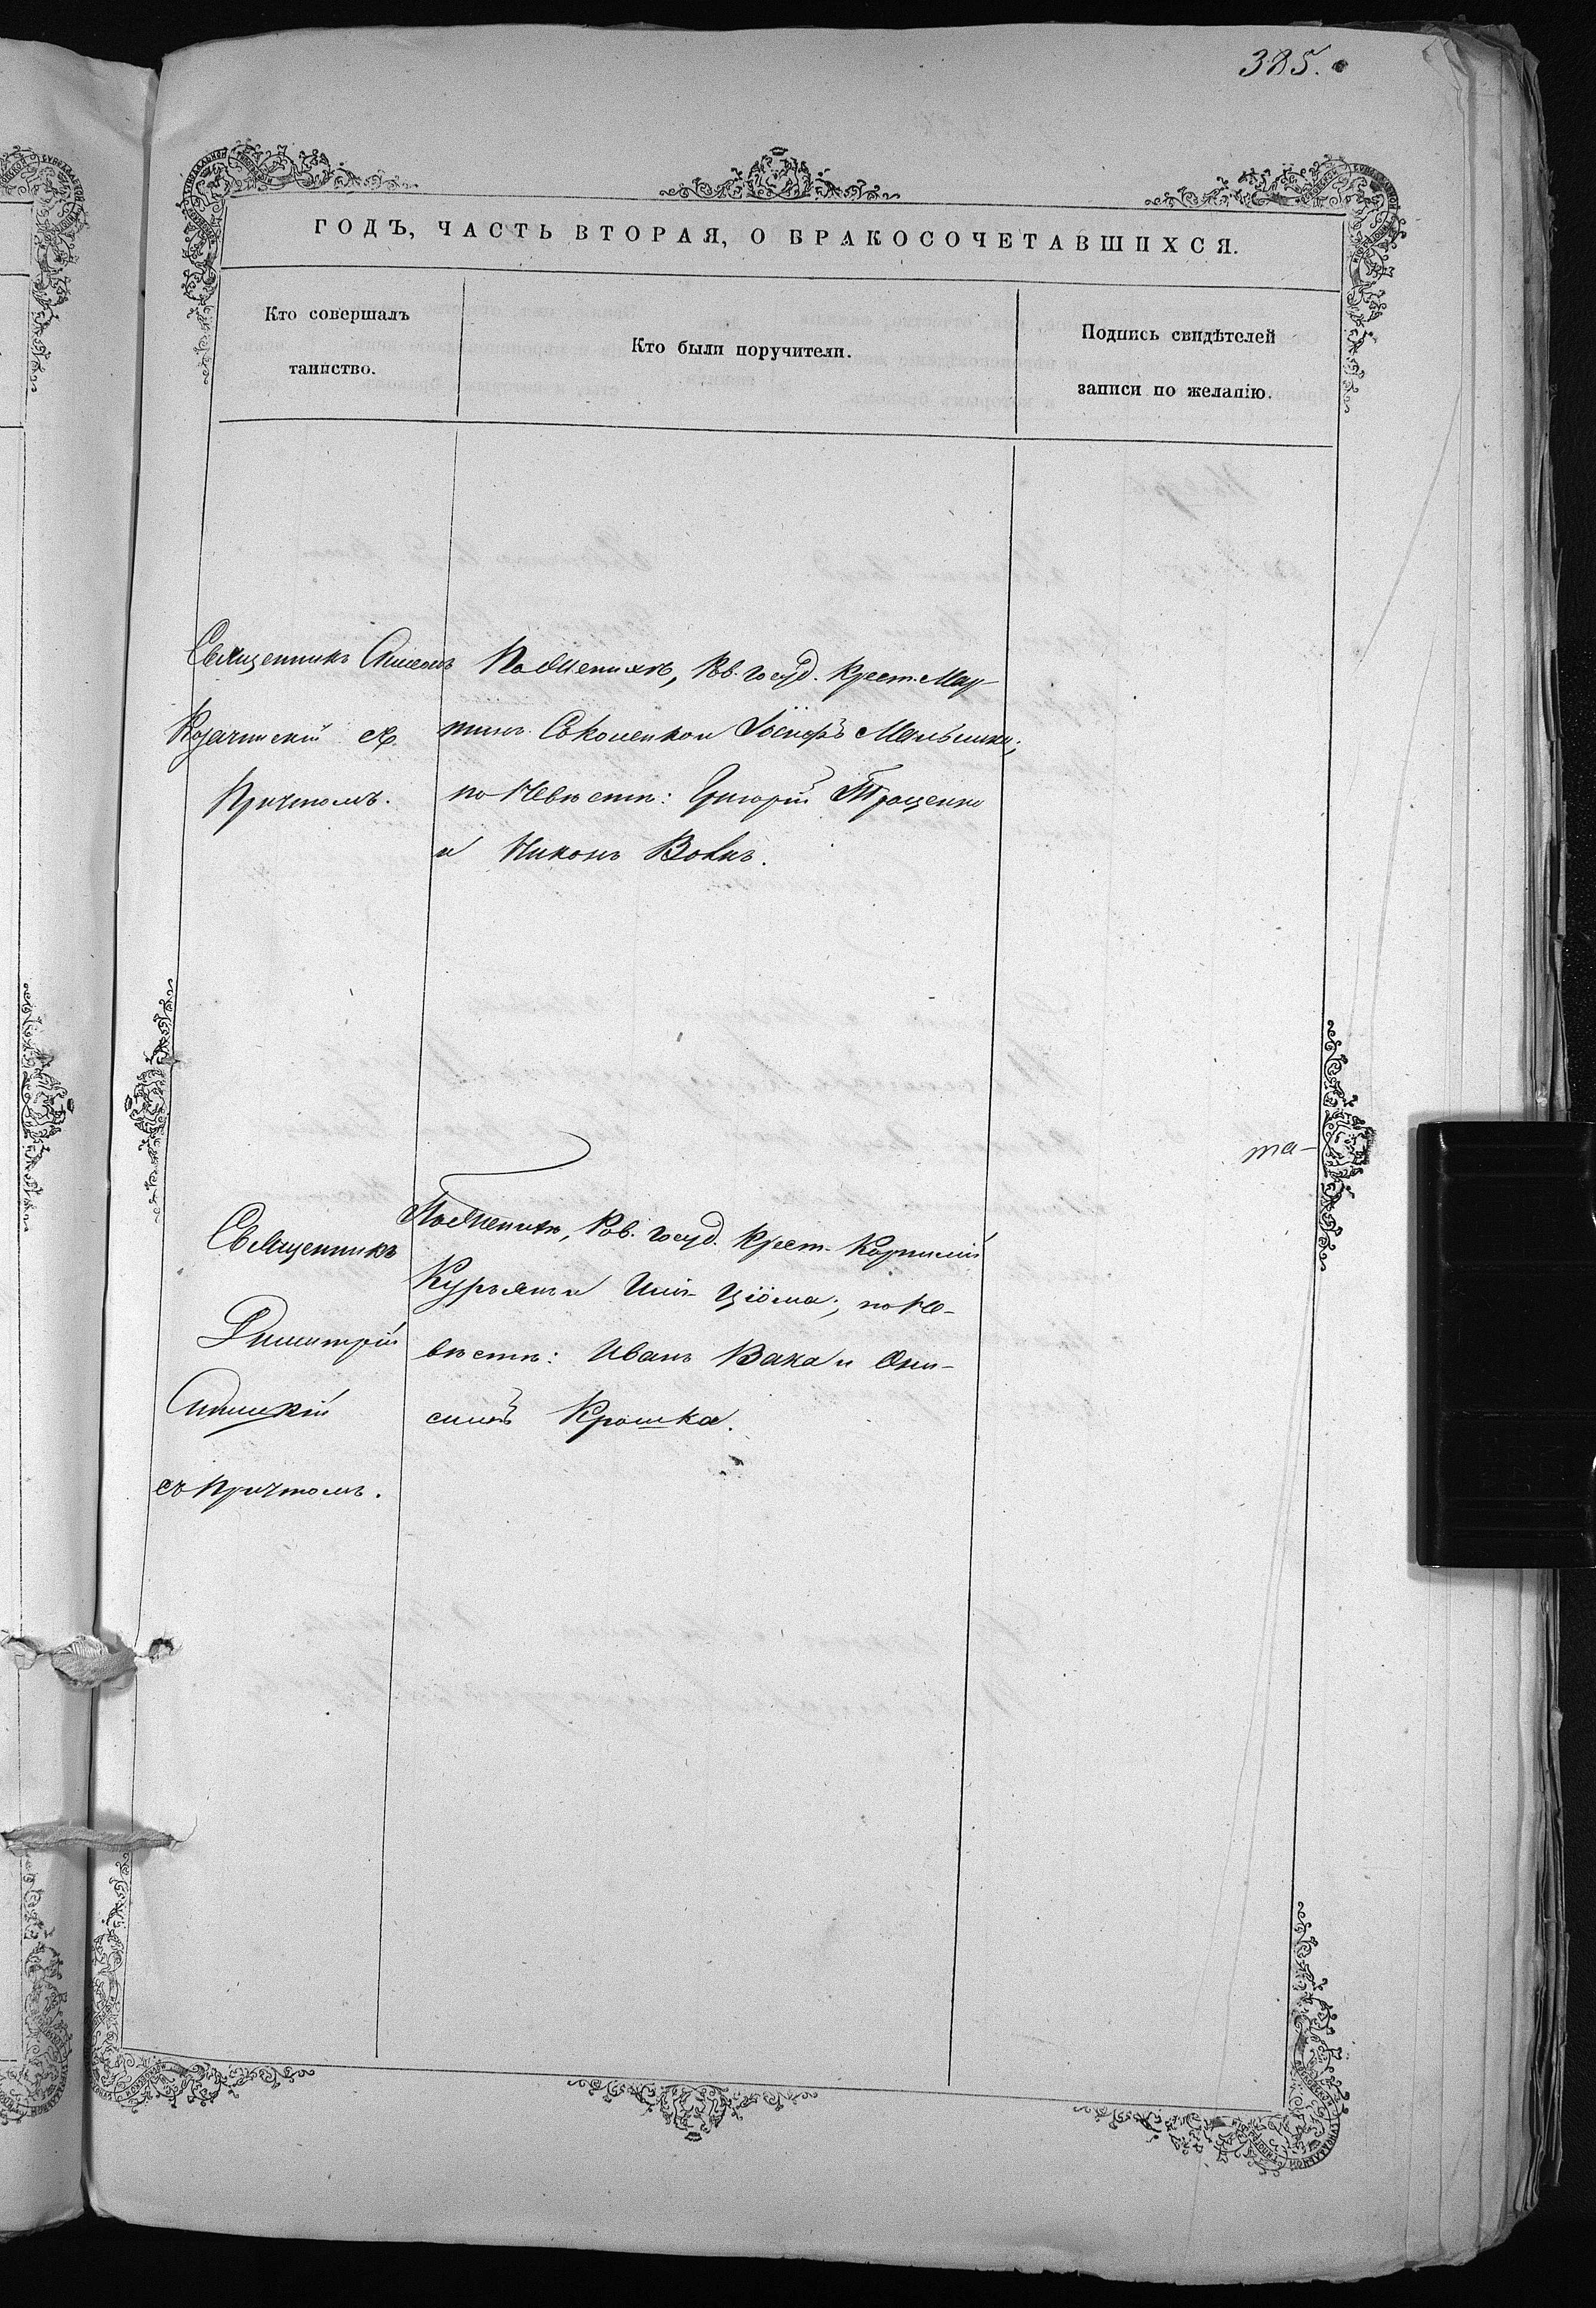 385.
ГОДЪ, ЧАСТЬ ВТОРАЯ, О БРАКОСОЧЕТАВШИХСЯ.
Кто совершалъ
таинство.
Кто были поручители.
Подпись свидѣтелей
записи по желанію.
Священникъ Симеонъ
Козачинскій съ
Причтомъ.
По Женихѣ, Кв. госуд. Крест. Мар-
тинъ и Іосифъ Мельники;
по Невѣстѣ: Григорій Трощенко
и Никонъ Вовкъ.
Священникъ
Димитрій
съ Причтомъ.
По Женихѣ, Ков. госуд. Крест. Корнилій
Курьянъ и Цiома; по Не-
вѣстѣ: Иванъ Вака и Они-
симъ Крошка.
та-